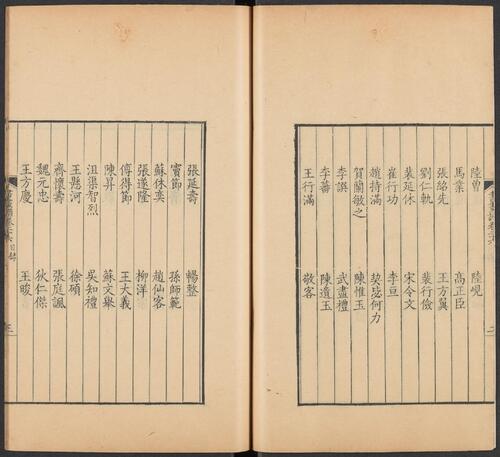 陸曾 陸峴
馬業 高正臣
張紹先 王方翼
劉仁軌 裴行儉
裴延休 宋令文
崔行功 李亶
趙持滿 契苾何力
賀蘭敏之 陳惟玉
李譔 武盡禮
李蕃 陳遺玉
王行滿 敬客
張延壽 暢整
竇節 孫師範
蘇休奕 趙仙客
張遂隆 柳洋
傅得節 王大義
陳昇 蘇文舉
沮渠智烈 吳知禮
王懸河 徐碩
齊懷壽 張庭諷
魏元忠 狄仁傑
王方慶 王晙
目錄
三